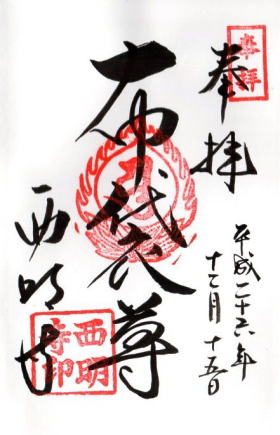 奉拝
奉拝
平成二十六年
十二月十五日
布袋尊
西明寺
西明
寺印